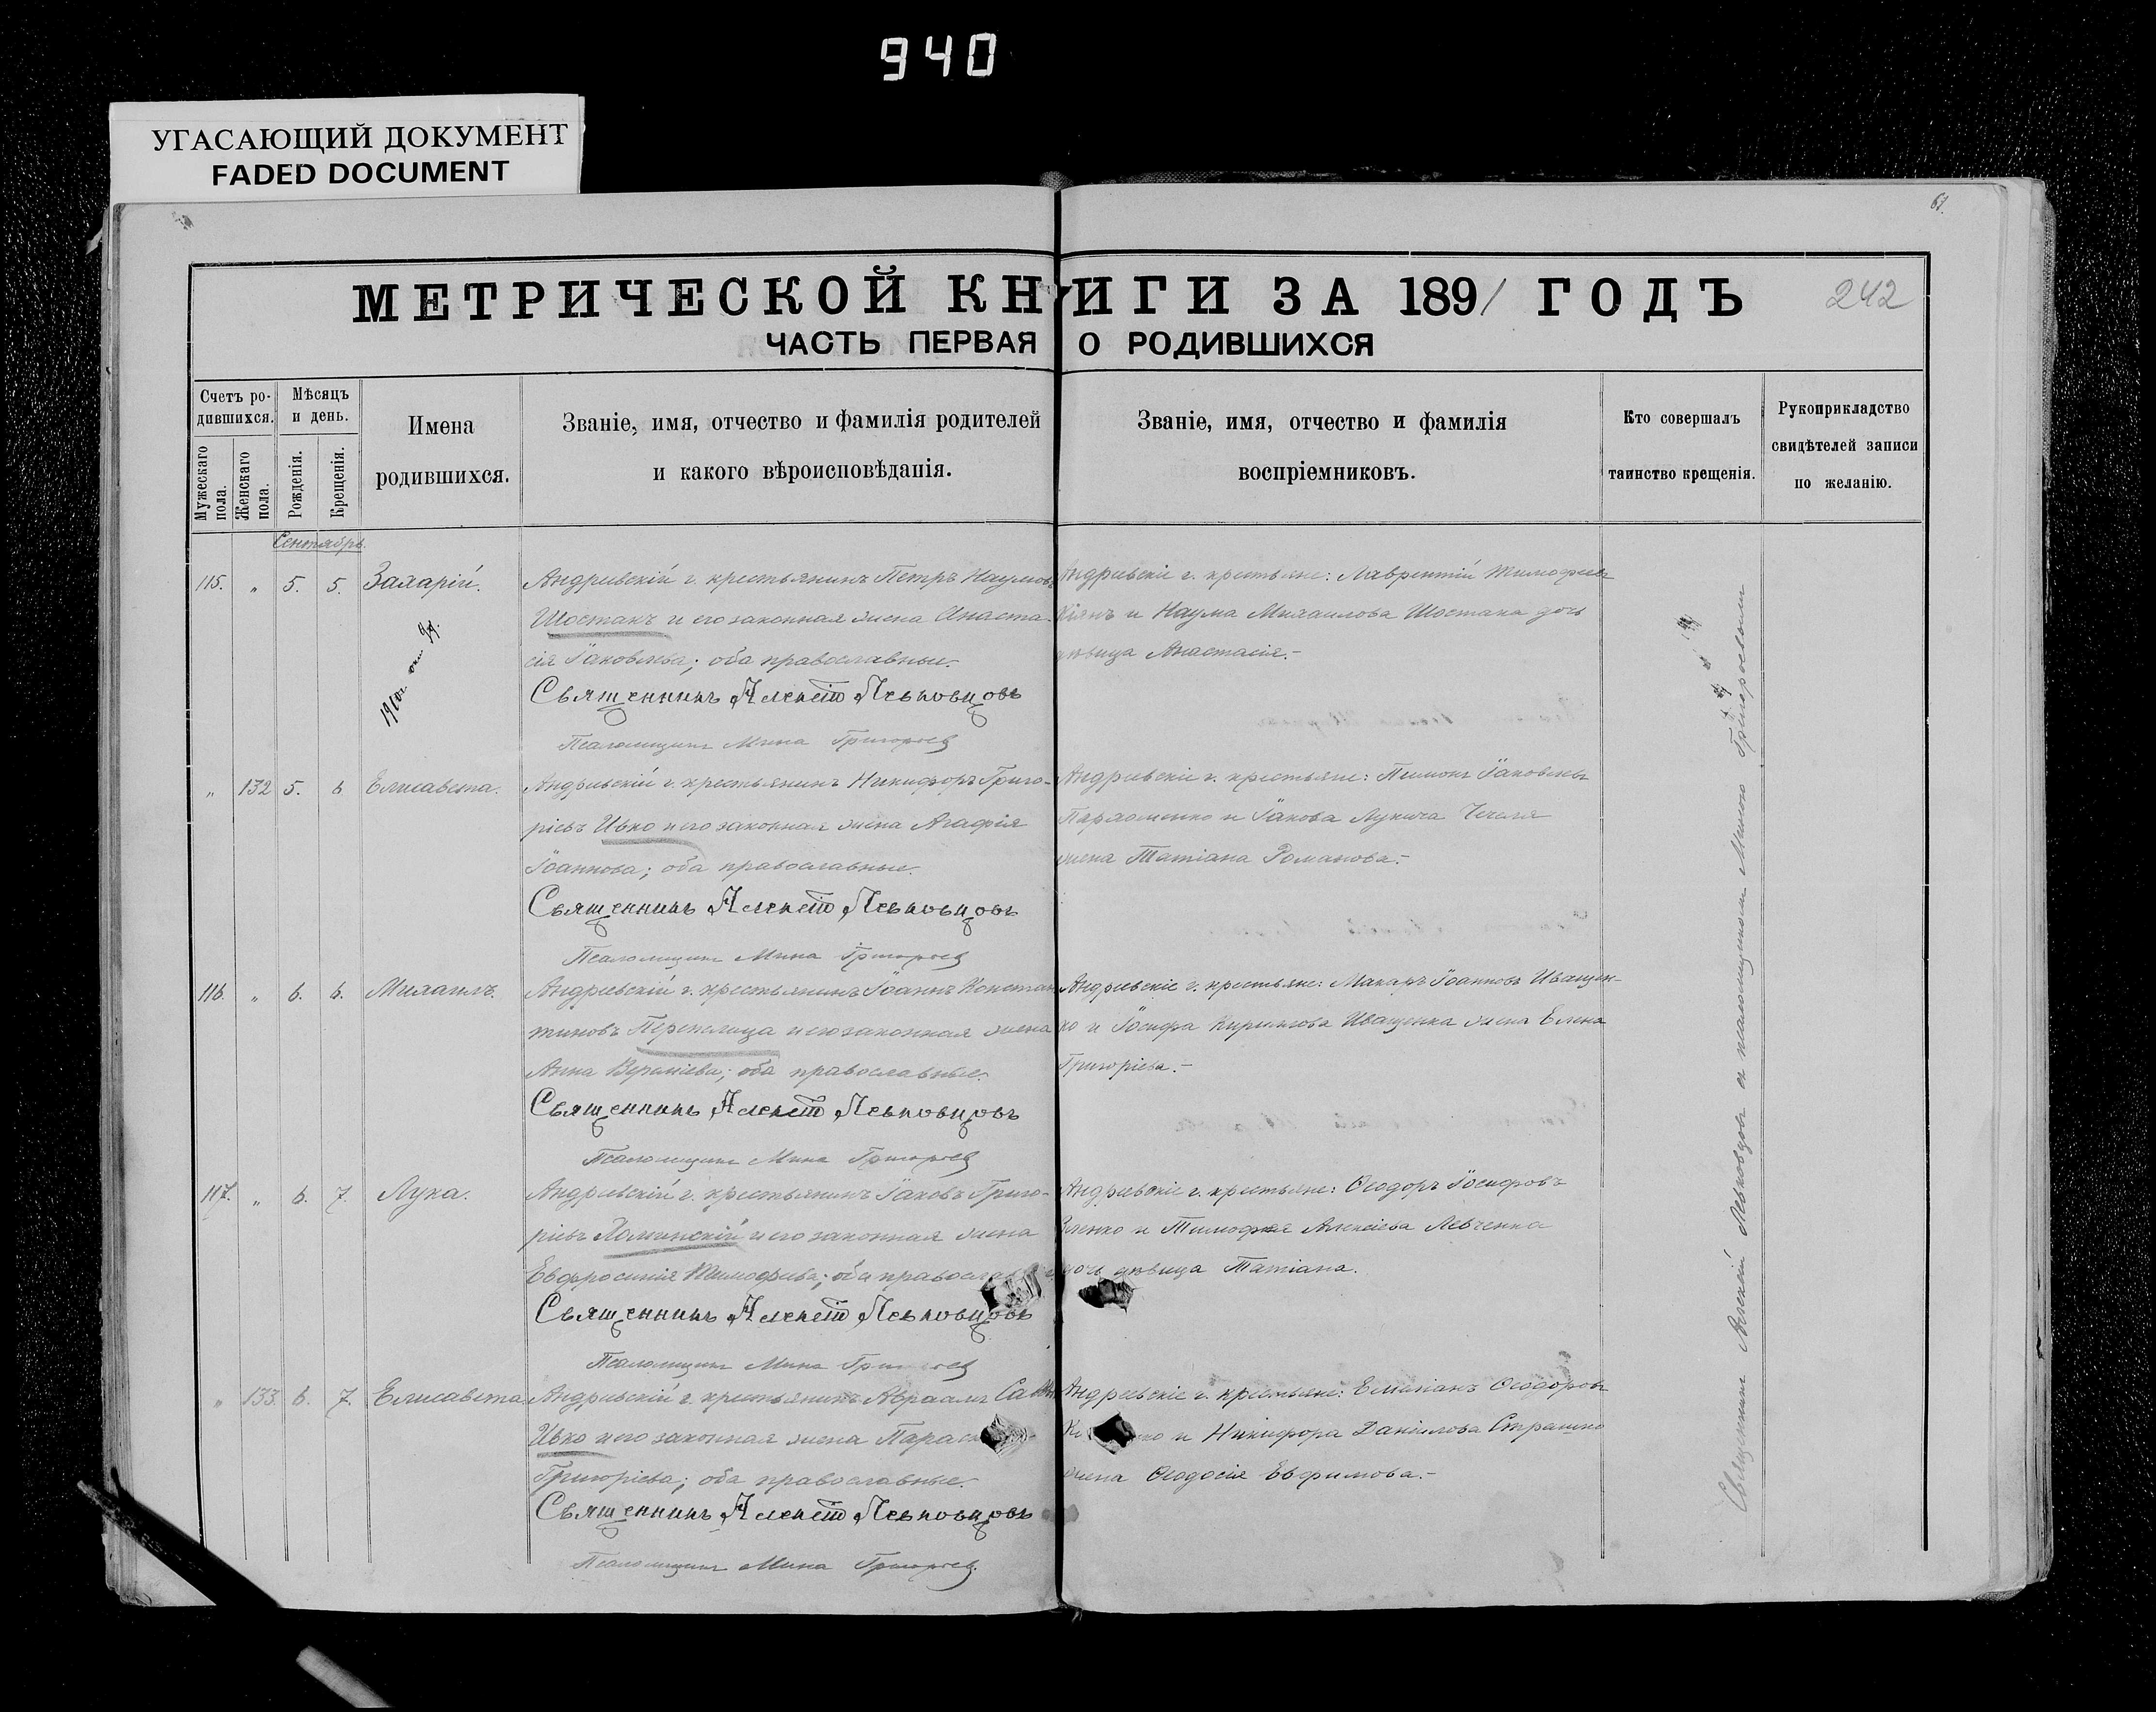 940
УГАСАЮЩИЙ ДОКУМЕНТ
FADED DOCUMENT
61.
МЕТРИЧЕСКОЙ КНИГИ ЗА 1891 ГОДЪ
242
ЧАСТЬ ПЕРВАЯ О РОДИВШИХСЯ
Счетъ ро-
дившихся.
Мужескаго пола.
Женскаго пола.
Мѣсяцъ
и день.
Рожденія.
Крещенія.
Имена
родившихся.
Званіе, имя, отчество и фамилія родителей
и какого вѣроисповѣданія.
Званіе, имя, отчество и фамилія
воспріемниковъ.
Кто совершалъ
таинство крещенія.
Рукоприкладство
свидѣтелей записи
по желанію.
Сентябрь.
115. " 5. 5. Захарій.
Андреевскій г. крестьянинъ Петръ Наумовъ
Шостакъ и его законная жена Анаста-
сія Іаковлева; оба православные.
Священникъ Алексій Левковцовъ
Псаломщикъ Мина Григорьев
Андреевскіе г. крестьяне: Лаврентій Тимофеевъ
и Наума Михаилова Шостака дочь
дѣвица Анастасія.-
" 132 5. 6 Елисавета.
Андреевскій г. крестьянинъ Никифоръ Григо-
ріевъ Ивко и его законная жена Агафія
Іоаннова; оба православные.
Священникъ Алексій Левковцовъ
Псаломщикъ Мина Григорьев
Андреевскіе г. крестьяне: Пимонъ Іаковлевъ
Пархоменко и Іакова Лукича Чечеля
жена Татіана Романова.-
116. " 6. 6. Михаилъ.
Андреевскій г. крестьянинъ Іоаннъ Констан-
тиновъ Перепелица и его законная жена
Анна; оба православные.
Священникъ Алексій Левковцовъ
Псаломщикъ Мина Григорьев
Андреевскіе г. крестьяне: Макаръ Іоанновъ Иващен-
ко и Іосифа Кириллова Иващенка жена Елена
Григоріева.-
117. " 6. 7. Лука.
Андреевскій г. крестьянинъ Іаковъ Григо-
ріевъ и его законная жена
Евфросинія Тимофеева; оба православ
Священникъ Алексій Левковцовъ
Псаломщикъ Мина Григорьев
Андреевскіе г. крестьяне: Ѳеодоръ Іосифовъ
и Тимофея Алексіева Левченка
дочь дѣвица Татіана.
" 133. 6. 7. Елисавета
Андреевскій г. крестьянинъ Авраамъ
Ивко и его законная жена Параск
Григоріева; оба православные.
Священникъ Алексій Левковцовъ
Псаломщикъ Мина Григорьев.
Андреевскіе г. крестьяне: Емиліанъ Ѳеодоровъ
и Никифора Даніилова Страшко
жена Ѳеодосія Евфимова.-
Священникъ Алексій Левковцовъ съ псаломщикомъ Миною Григоровымъ